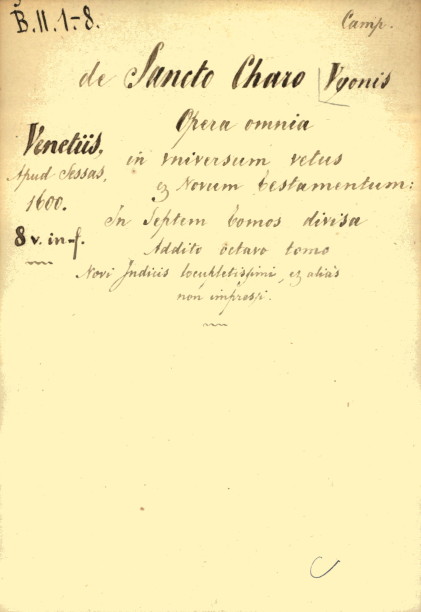 B.II.1-8.
Camp.
de Sancto Charo Vgonis
Opera omnia
Venetiis.
in vniversum vetus
Apud Sessas.
& Novum testamentum:
1600.
In Septem tomos divisa
8 v. in-f.
Addito octavo tomo
Novi Indicis locupletissimi, & alias
non impressi.